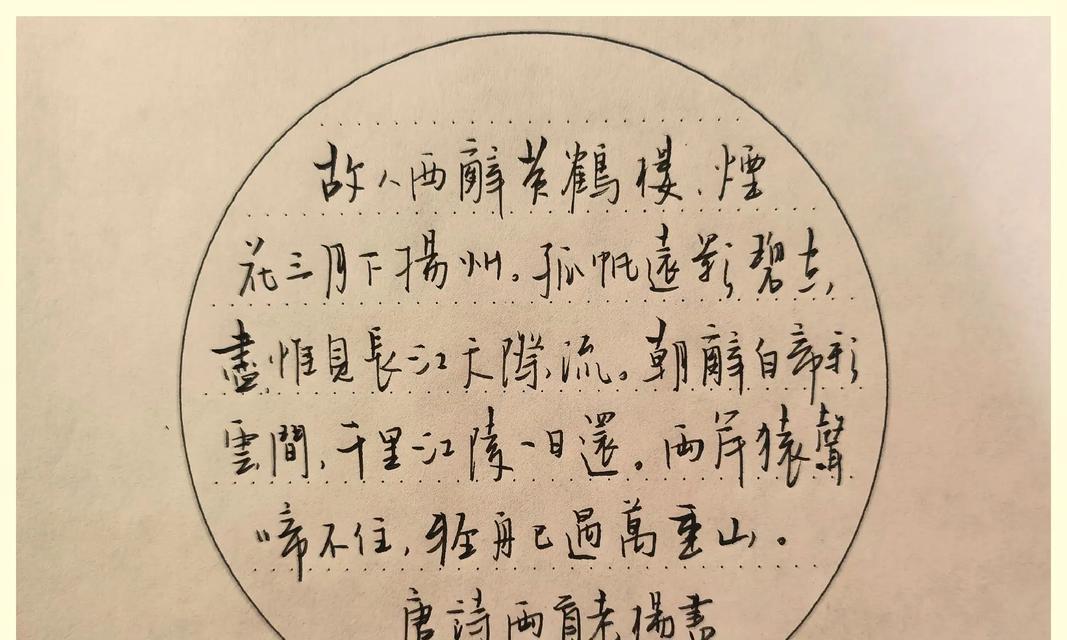 故人西辭黃鶴樓、煙
花三月下揚州。孤帆遠影碧空
盡,惟見長江天際流。朝辭白帝彩
雲間,千里江陵一日還。兩岸猿聲
啼不住,輕舟已過萬重山。
唐詩兩首老楊書